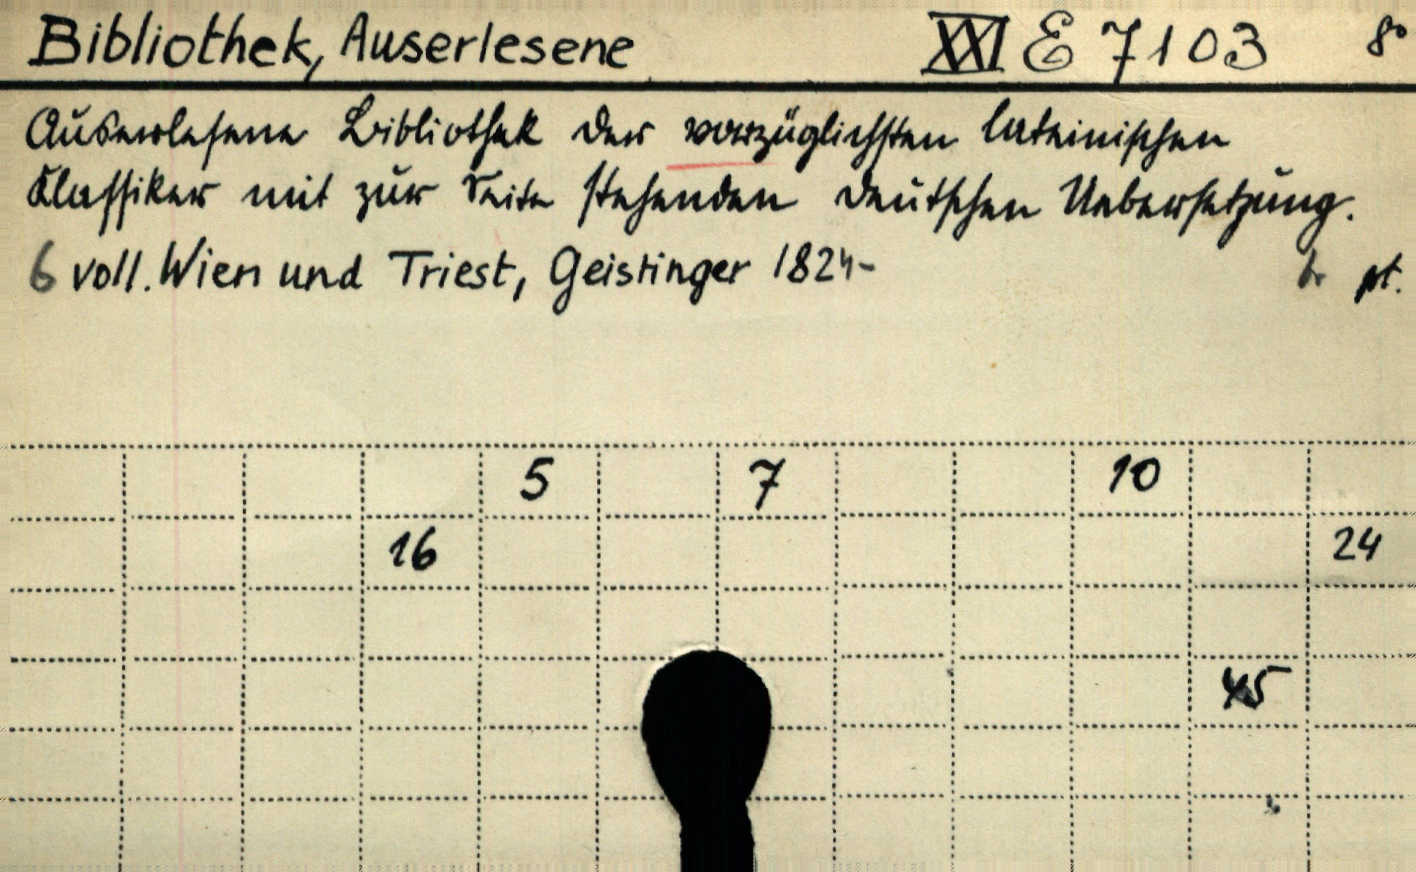 Bibliothek, Auserlesene XXI E 7103 8°
Auserlesene Bibliothek der vorzüglichsten lateinischen
Klassiker mit zur Seite stehenden deutschen Uebersetzung.
6 voll. Wien und Triest, Geistinger 1824- br pt.
5 7 10
16 24
45